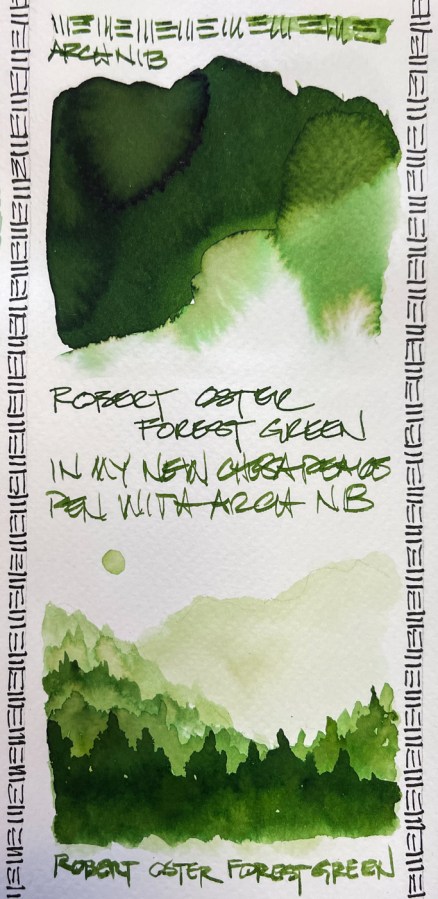 ARCH NIB
ROBERT OSTER
FOREST GREEN
IN MY NEW CHESAPEAKE
PEN WITH ARCH NIB
ROBERT OSTER FOREST GREEN